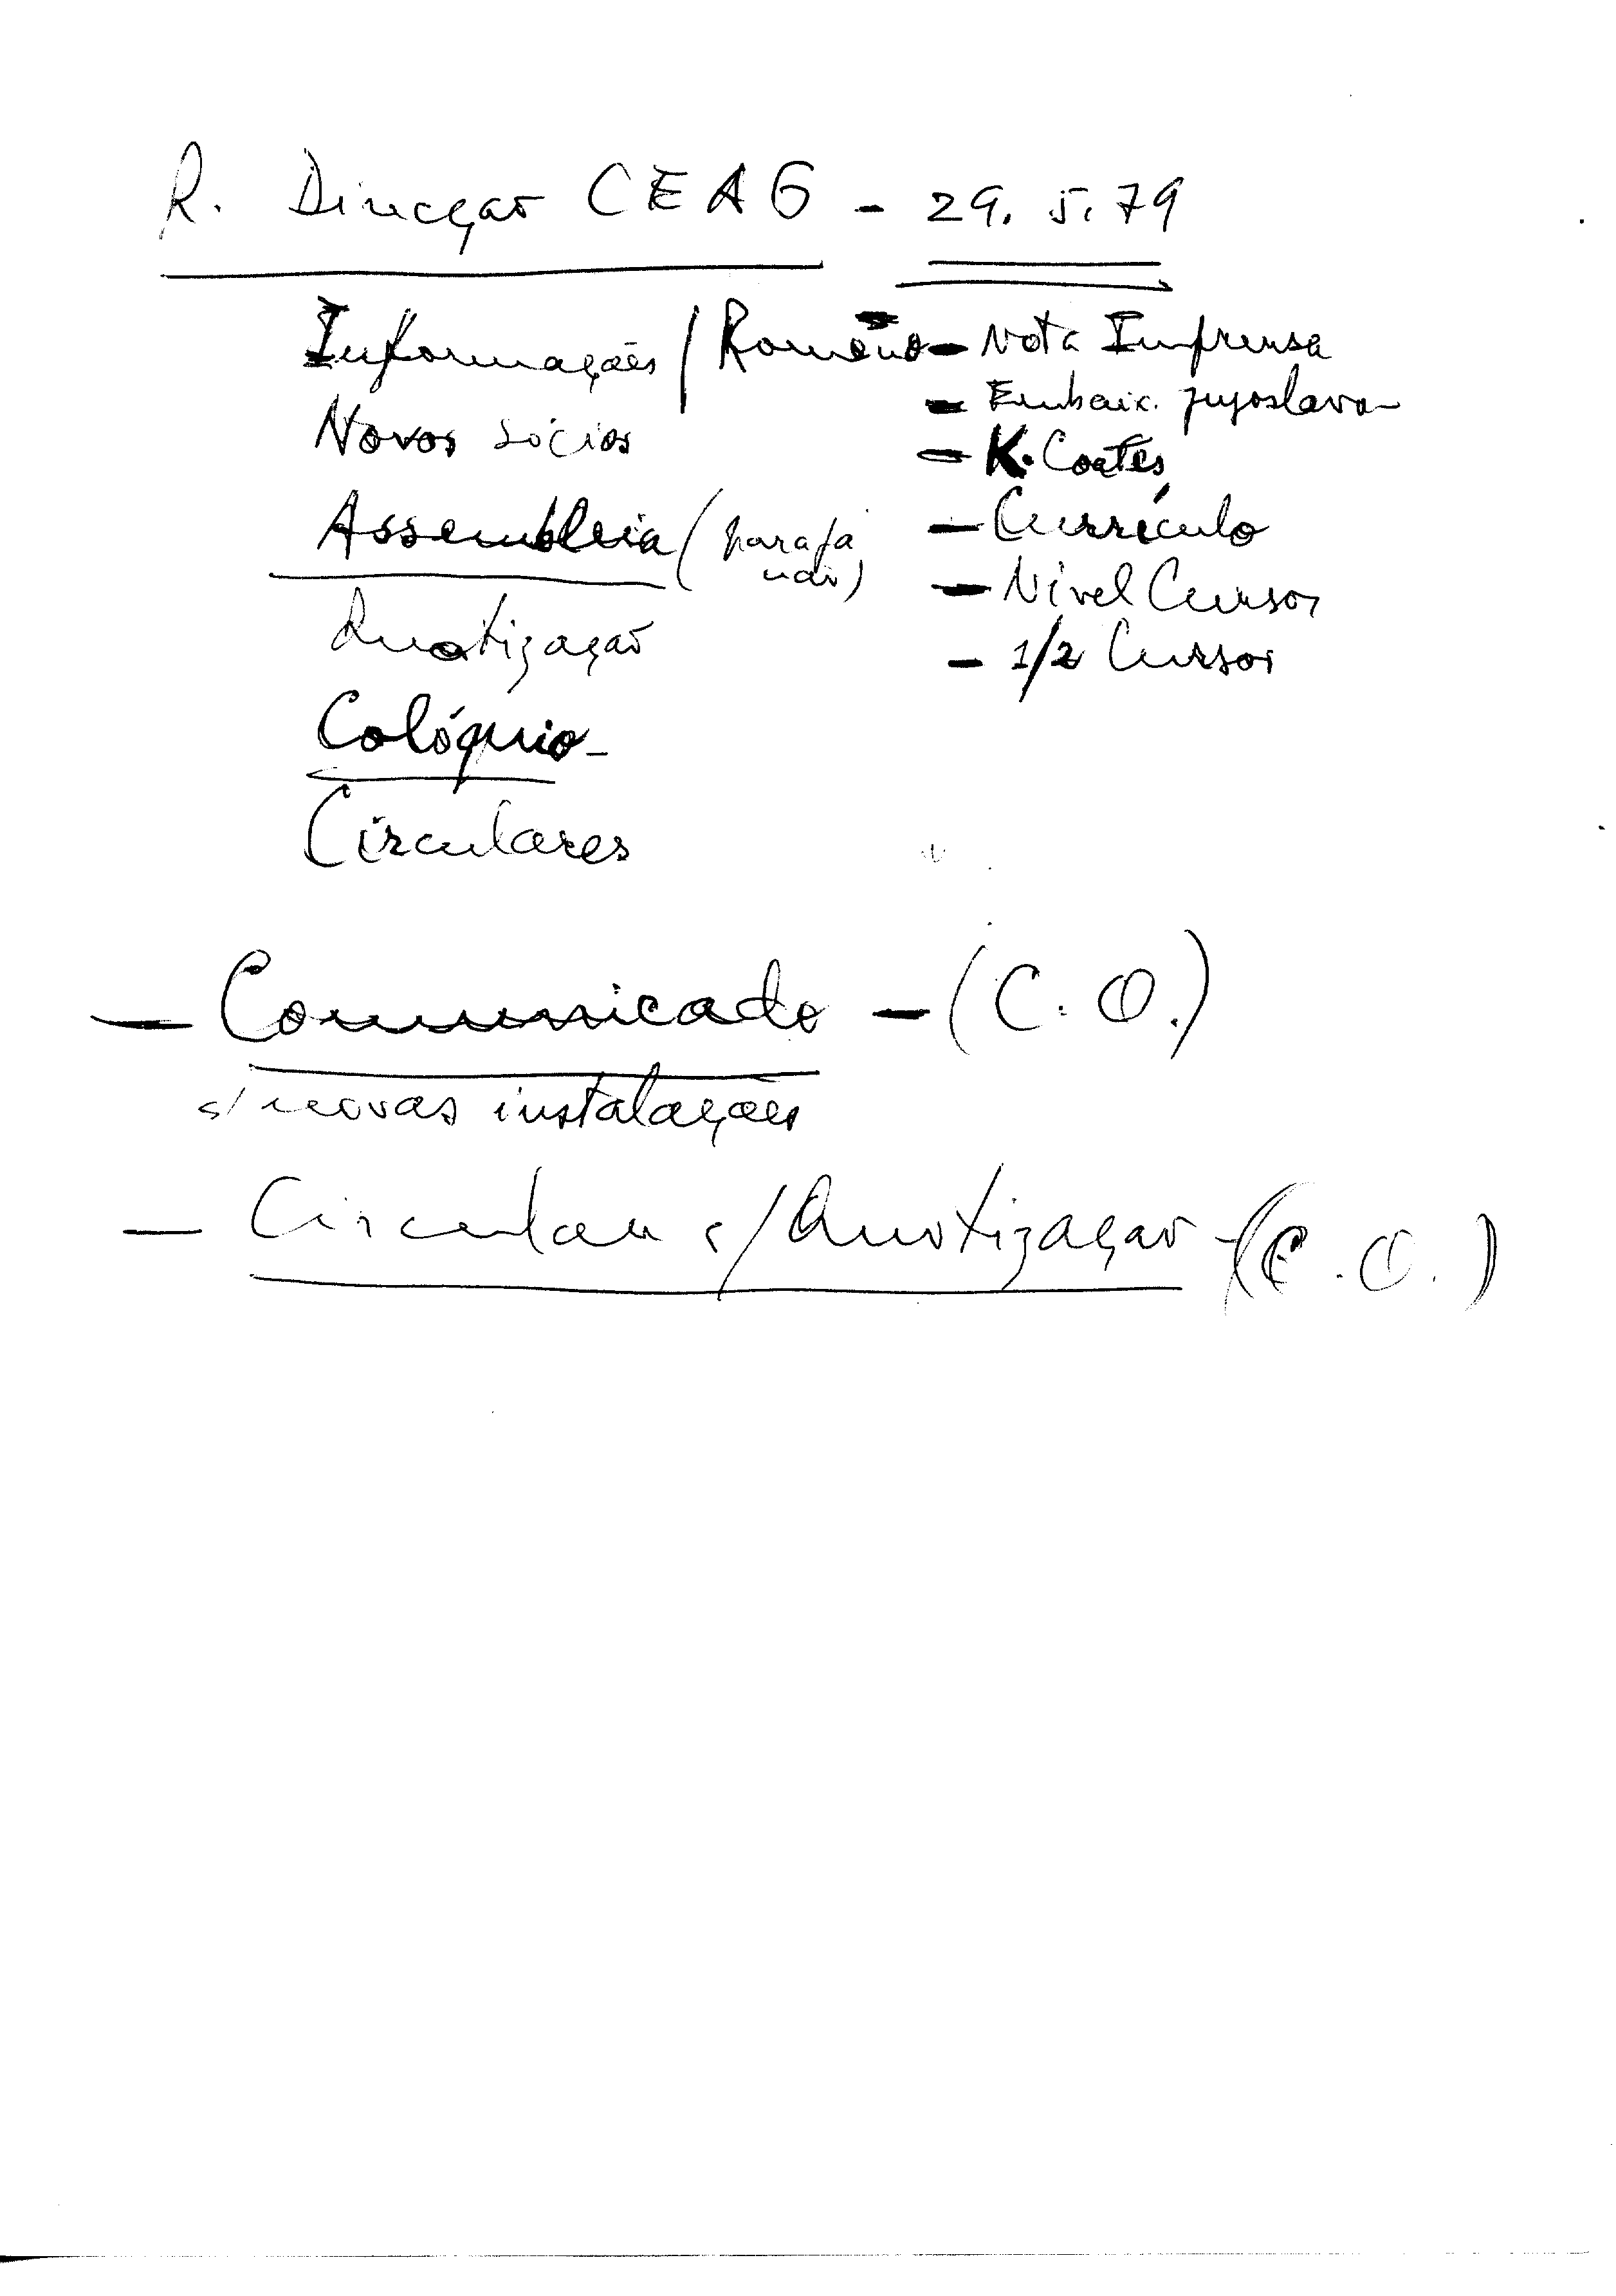 R. Direcção CEAG - 29.5.79
Informações / Romeno - Nota Imprensa
- Embaix. jugoslava
Novos sócios
- K. Coates
Assembleia (para já não)
- Currículo
- Nível Cursos
Quotização
- 1/2 Cursos
Colóquio -
Circulares
- Comunicado - (C. O.)
s/ novas instalações
- Circular s/ Quotização - (C. O.)